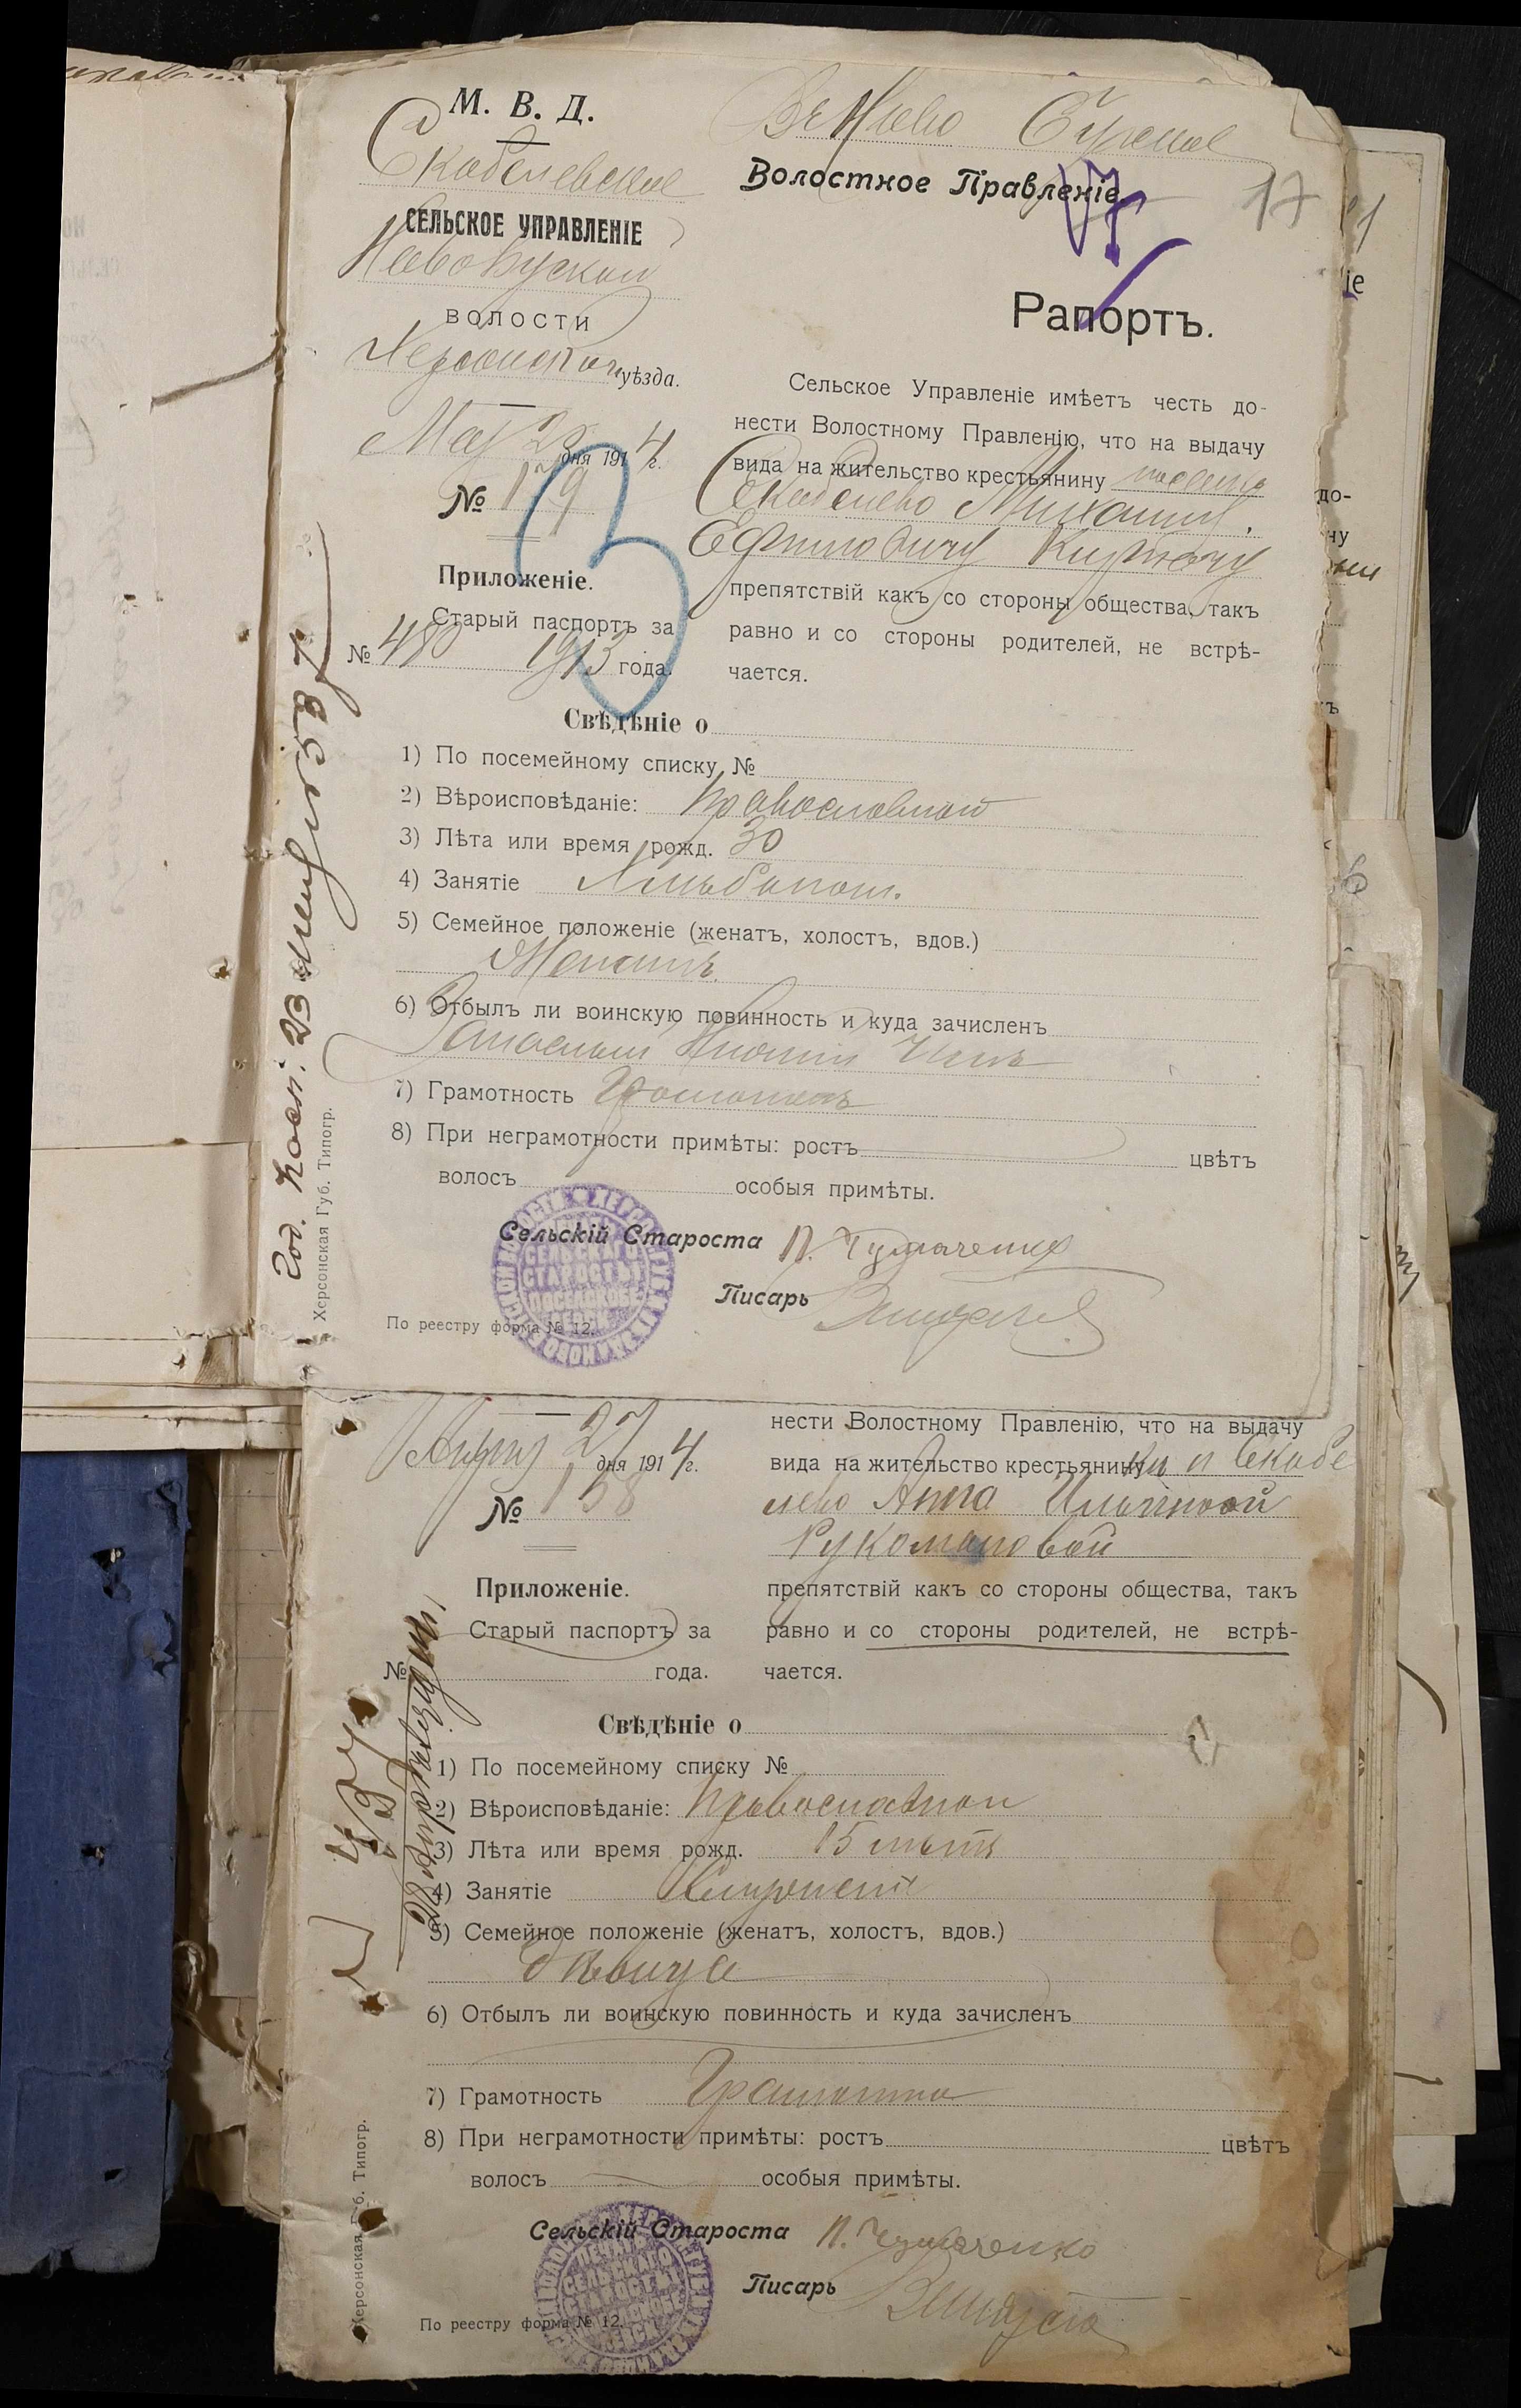 М. В. Д.
Скобелевское
СЕЛЬСКОЕ УПРАВЛЕНІЕ
Новобугской
ВОЛОСТИ
Херсонского уѣзда.
Мая 2 дня 1914 г.
№ 179
Приложеніе.
Старый паспортъ за
№ 480 1913 года.
Волостное Правленіе
17
Рапортъ.
Сельское Управленіе имѣетъ честь до-
нести Волостному Правленію, что на выдачу
вида на жительство крестьянину
Скобелево Михаилу
Ефимовичу
препятствій какъ со стороны общества, такъ
равно и со стороны родителей, не встрѣ-
чается.
Свѣдѣніе о
1) По посемейному списку №
2) Вѣроисповѣданіе: Православной
3) Лѣта или время рожд. 30
4) Занятіе Хлѣбопаш.
5) Семейное положеніе (женатъ, холостъ, вдов.)
Женатъ
6) Отбылъ ли воинскую повинность и куда зачисленъ
Запасный Нижній Чинъ
7) Грамотность Грамотенъ
8) При неграмотности примѣты: ростъ цвѣтъ
волосъ особыя примѣты.
Сельскій Староста П. Чумаченко
Писарь
По реестру форма № 12.
Херсонская Губ. Типогр.
Год. Посп. 23
Апрѣля 27 дня 1914 г.
№ 158
Приложеніе.
Старый паспортъ за
№ года.
нести Волостному Правленію, что на выдачу
вида на жительство крестьянинуке п Скобе
лево Анна Ильиной
Рукомановой
препятствій какъ со стороны общества, такъ
равно и со стороны родителей, не встрѣ-
чается.
Свѣдѣніе о
1) По посемейному списку №
2) Вѣроисповѣданіе: Православной
3) Лѣта или время рожд. 15 лѣтъ
4) Занятіе
5) Семейное положеніе (женатъ, холостъ, вдов.)
дѣвица
6) Отбылъ ли воинскую повинность и куда зачисленъ
7) Грамотность Грамотна
8) При неграмотности примѣты: ростъ цвѣтъ
волосъ особыя примѣты.
Сельскій Староста П. Чумаченко
Писарь
По реестру форма № 12.
Херсонская Губ. Типогр.